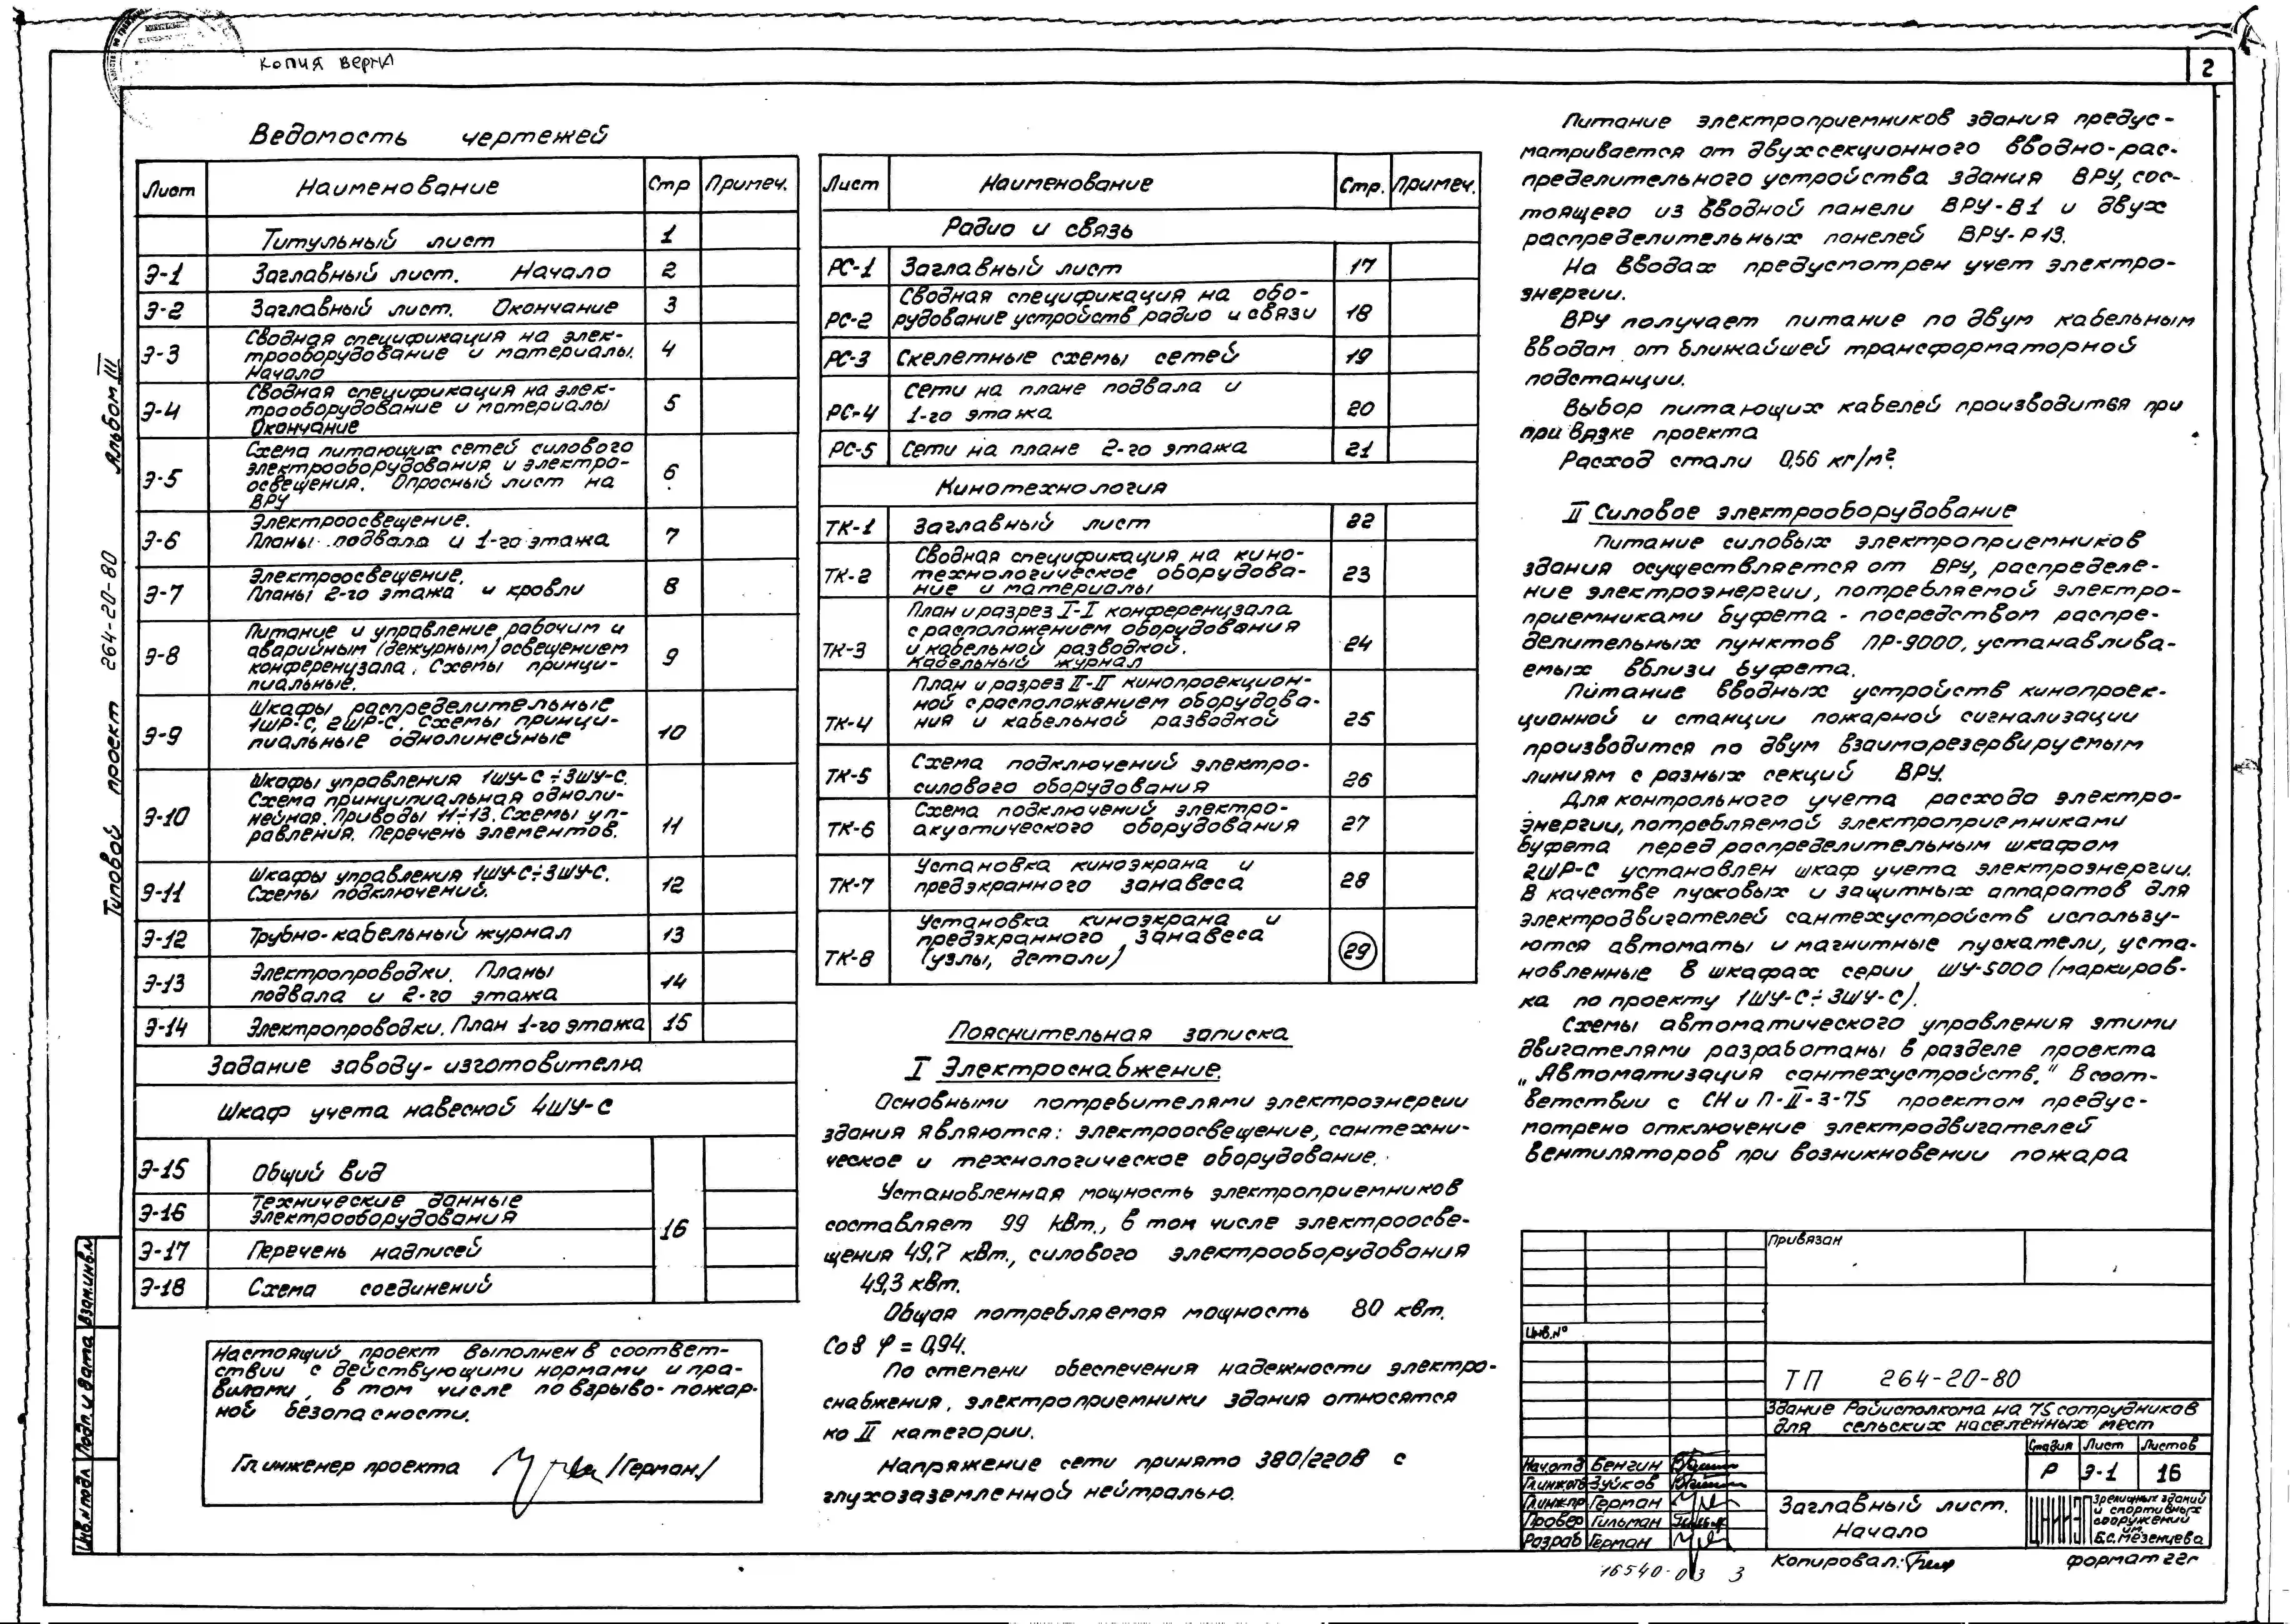 КОПИЯ ВЕРНА
2
Ведомость чертежей
Лист Наименование Стр Примеч.
Титульный лист 1
Э-1 Заглавный лист. Начало 2
Э-2 Заглавный лист. Окончание 3
Сводная спецификация на элек-
Э-3 трооборудование и материалы. 4
Начало
Сводная спецификация на элек-
Э-4 трооборудование и материалы 5
Окончание
Схема питающих сетей силового
электрооборудования и электро-
Э-5 освещения. Опросный лист на 6
ВРУ
Электроосвещение.
Э-6 Планы подвала и 1-го этажа 7
Электроосвещение.
Э-7 Планы 2-го этажа и кровли 8
Питание и управление рабочим и
Э-8 аварийным (дежурным) освещением 9
конференцзала. Схемы принци-
пиальные.
Шкафы распределительные
1ШР-С, 2ШР-С. Схемы принци-
Э-9 пиальные однолинейные 10
Шкафы управления 1ШУ-С÷3ШУ-С.
Схема принципиальная одноли-
Э-10 нейная. Приводы 11÷13. Схемы уп- 11
равления. Перечень элементов.
Шкафы управления 1ШУ-С÷3ШУ-С.
Э-11 Схемы подключений. 12
Э-12 Трубно-кабельный журнал 13
Э-13 Электропроводки. Планы 14
подвала и 2-го этажа
Э-14 Электропроводки. План 1-го этажа 15
Задание заводу-изготовителю
Шкаф учета навесной 4ШУ-С
Э-15 Общий вид
Э-16 Технические данные
электрооборудования
16
Э-17 Перечень надписей
Э-18 Схема соединений
Настоящий проект выполнен в соответ-
ствии с действующими нормами и пра-
вилами, в том числе по взрыво-пожар-
ной безопасности.
Гл инженер проекта /Герман/
Лист Наименование Стр. Примеч.
Радио и связь
РС-1 Заглавный лист 17
Сводная спецификация на обо-
РС-2 рудование устройств радио и связи 18
РС-3 Скелетные схемы сетей 19
Сети на плане подвала и
РС-4 1-го этажа 20
РС-5 Сети на плане 2-го этажа 21
Кинотехнология
ТК-1 Заглавный лист 22
Сводная спецификация на кино-
ТК-2 технологическое оборудова- 23
ние и материалы
План и разрез I-I конференцзала
с расположением оборудования
ТК-3 и кабельной разводкой. 24
Кабельный журнал
План и разрез II-II кинопроекцион-
ной с расположением оборудова-
ТК-4 ния и кабельной разводкой 25
ТК-5 Схема подключений электро- 26
силового оборудования
Схема подключений электро-
ТК-6 акустического оборудования 27
Установка киноэкрана и
ТК-7 предэкранного занавеса 28
Установка киноэкрана и
предэкранного занавеса
ТК-8 (узлы, детали) 29
Пояснительная записка
I Электроснабжение.
Основными потребителями электроэнергии
здания являются: электроосвещение, сантехни-
ческое и технологическое оборудование.
Установленная мощность электроприемников
составляет 99 кВт., в том числе электроосве-
щения 49,7 кВт., силового электрооборудования
49,3 кВт.
Общая потребляемая мощность 80 кВт.
Cos φ = 0,94.
По степени обеспечения надежности электро-
снабжения, электроприемники здания относятся
ко II категории.
Напряжение сети принято 380/220В с
глухозаземленной нейтралью.
Питание электроприемников здания предус-
матривается от двухсекционного вводно-рас-
пределительного устройства здания ВРУ, сос-
тоящего из вводной панели ВРУ-В1 и двух
распределительных панелей ВРУ-Р13.
На вводах предусмотрен учет электро-
энергии.
ВРУ получает питание по двум кабельным
вводам от ближайшей трансформаторной
подстанции.
Выбор питающих кабелей производится при
привязке проекта
Расход стали 0,56 кг/м².
II Силовое электрооборудование
Питание силовых электроприемников
здания осуществляется от ВРУ, распределе-
ние электроэнергии, потребляемой электро-
приемниками буфета - посредством распре-
делительных пунктов ПР-9000, устанавлива-
емых вблизи буфета.
Питание вводных устройств кинопроек-
ционной и станции пожарной сигнализации
производится по двум взаиморезервируемым
линиям с разных секций ВРУ.
Для контрольного учета расхода электро-
энергии, потребляемой электроприемниками
буфета перед распределительным шкафом
2ШР-С установлен шкаф учета электроэнергии.
В качестве пусковых и защитных аппаратов для
электродвигателей сантехустройств использу-
ются автоматы и магнитные пускатели, уста-
новленные в шкафах серии ШУ-5000 (маркиров-
ка по проекту 1ШУ-С÷3ШУ-С).
Схемы автоматического управления этими
двигателями разработаны в разделе проекта
„Автоматизация сантехустройств." В соот-
ветствии с СНиП-II-3-75 проектом предус-
мотрено отключение электродвигателей
вентиляторов при возникновении пожара
Привязан
Инв.№
ТП 264-20-80
Здание Райисполкома на 75 сотрудников
для сельских населенных мест
Стадия Лист Листов
Р Э-1 16
Нач.отд Бенгин
Гл.инж.отд Зуйков
Гл.инж.пр Герман
Провер Гильман
Разраб Герман
Заглавный лист.
Начало
Зрелищных зданий
и спортивных
сооружений
им.
Б.С. Мезенцева
Копировал: формат 22г
16540-03 3
Типовой проект 264-20-80 Альбом III
Инв.№ подл Подп. и дата Взам.инв.№